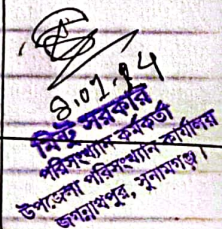 8.01.24
মিন্টু সরকার
পরিসংখ্যান কর্মকর্তা
উপজেলা পরিসংখ্যান কার্যালয়
জগন্নাথপুর, সুনামগঞ্জ।